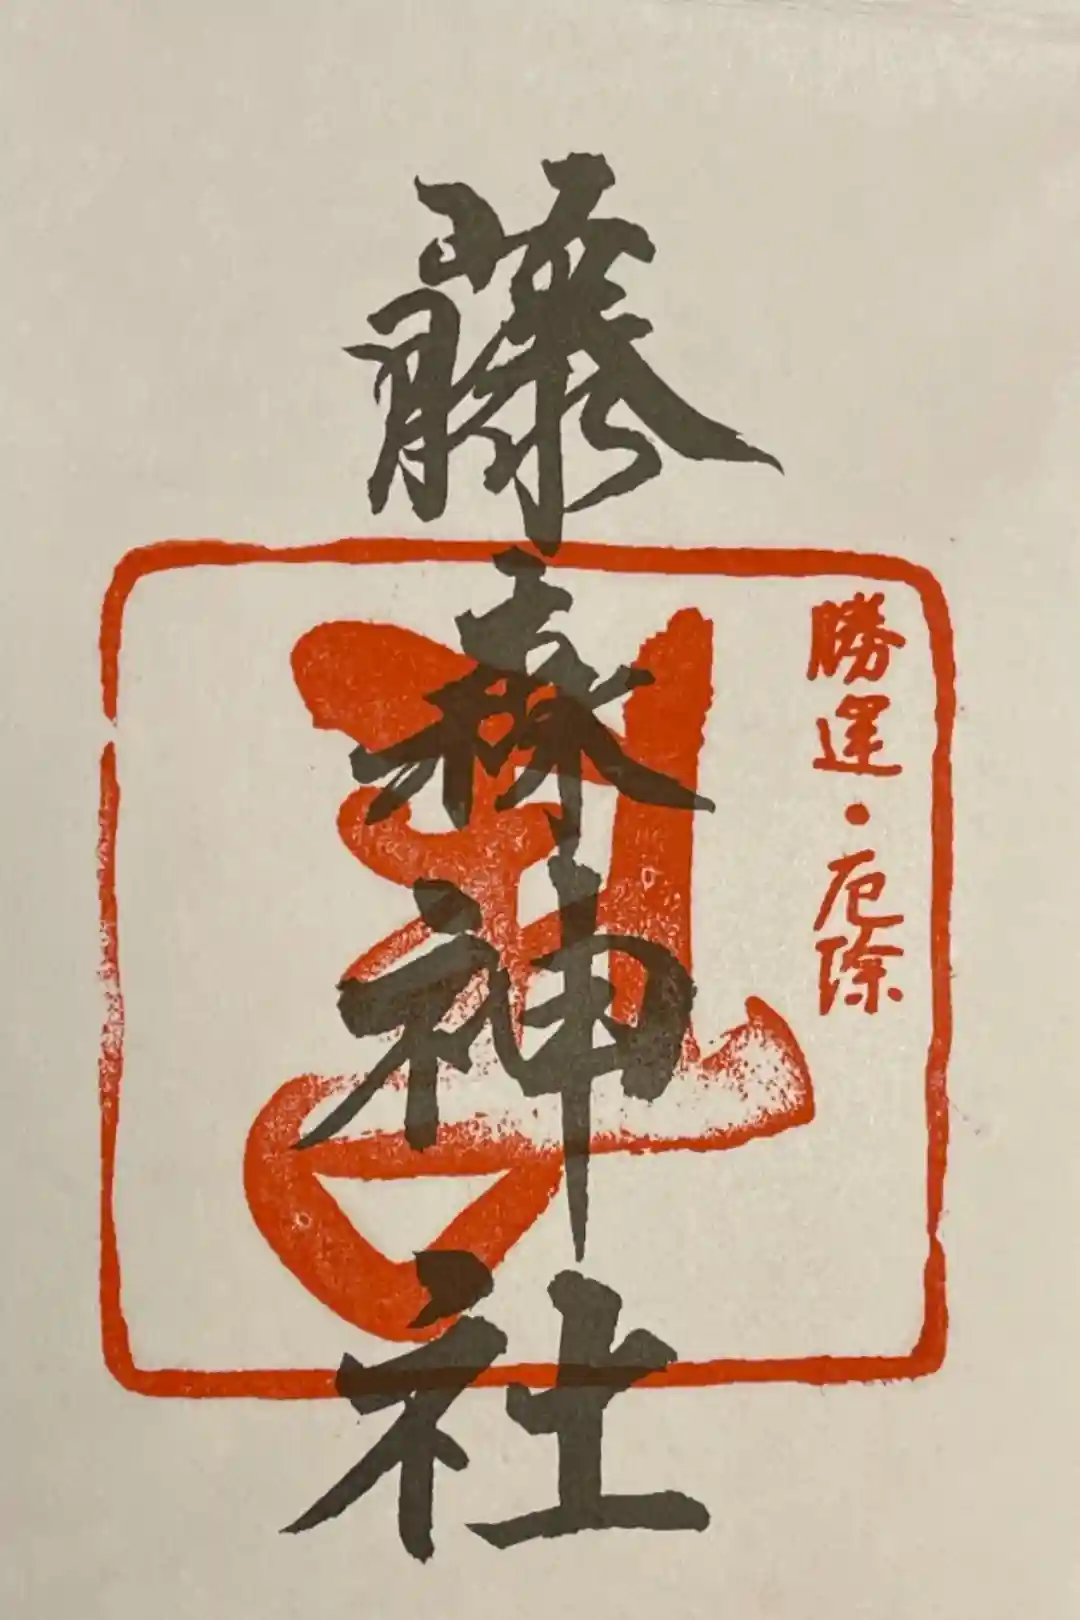 勝運・厄除
藤森神社